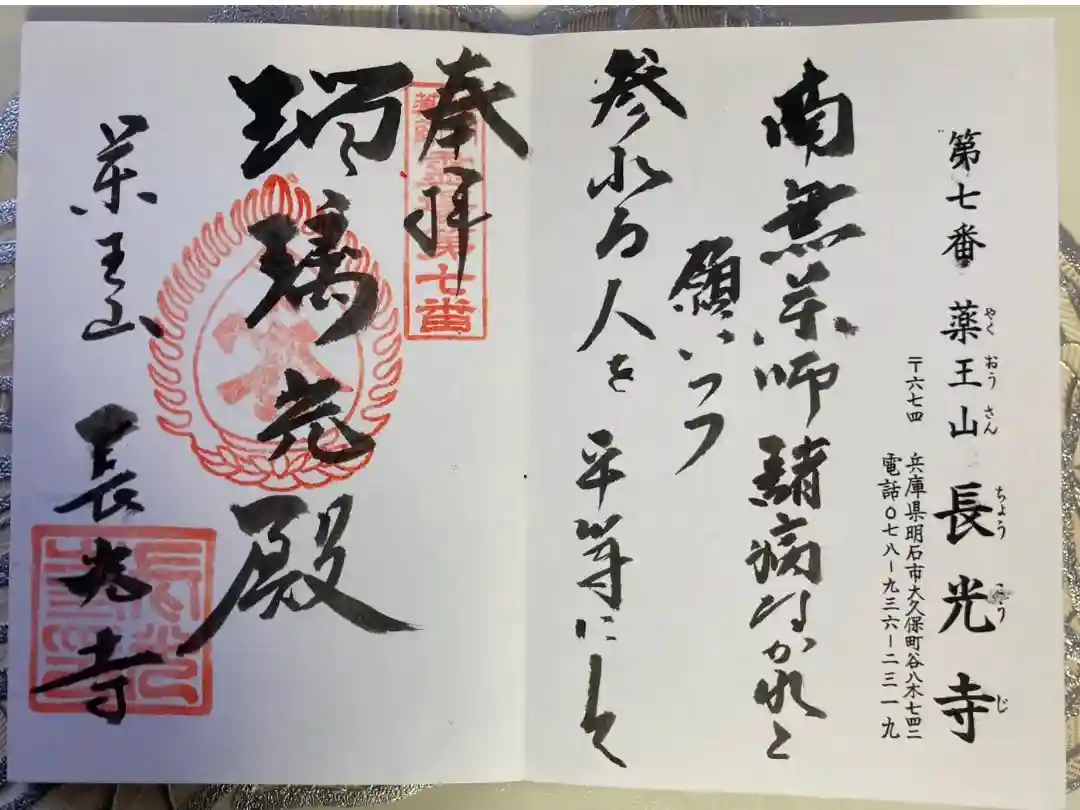 第七番 薬王山 長光寺
やく おう さん ちょう こう じ
〒六七四 兵庫県明石市大久保町谷八木七四二
電話〇七八ー九三六ー二三一九
南無薬師諸病なかれと
願いつつ
参れる人を平等にして
奉拝
第七番
瑠璃光殿
薬王山 長光寺